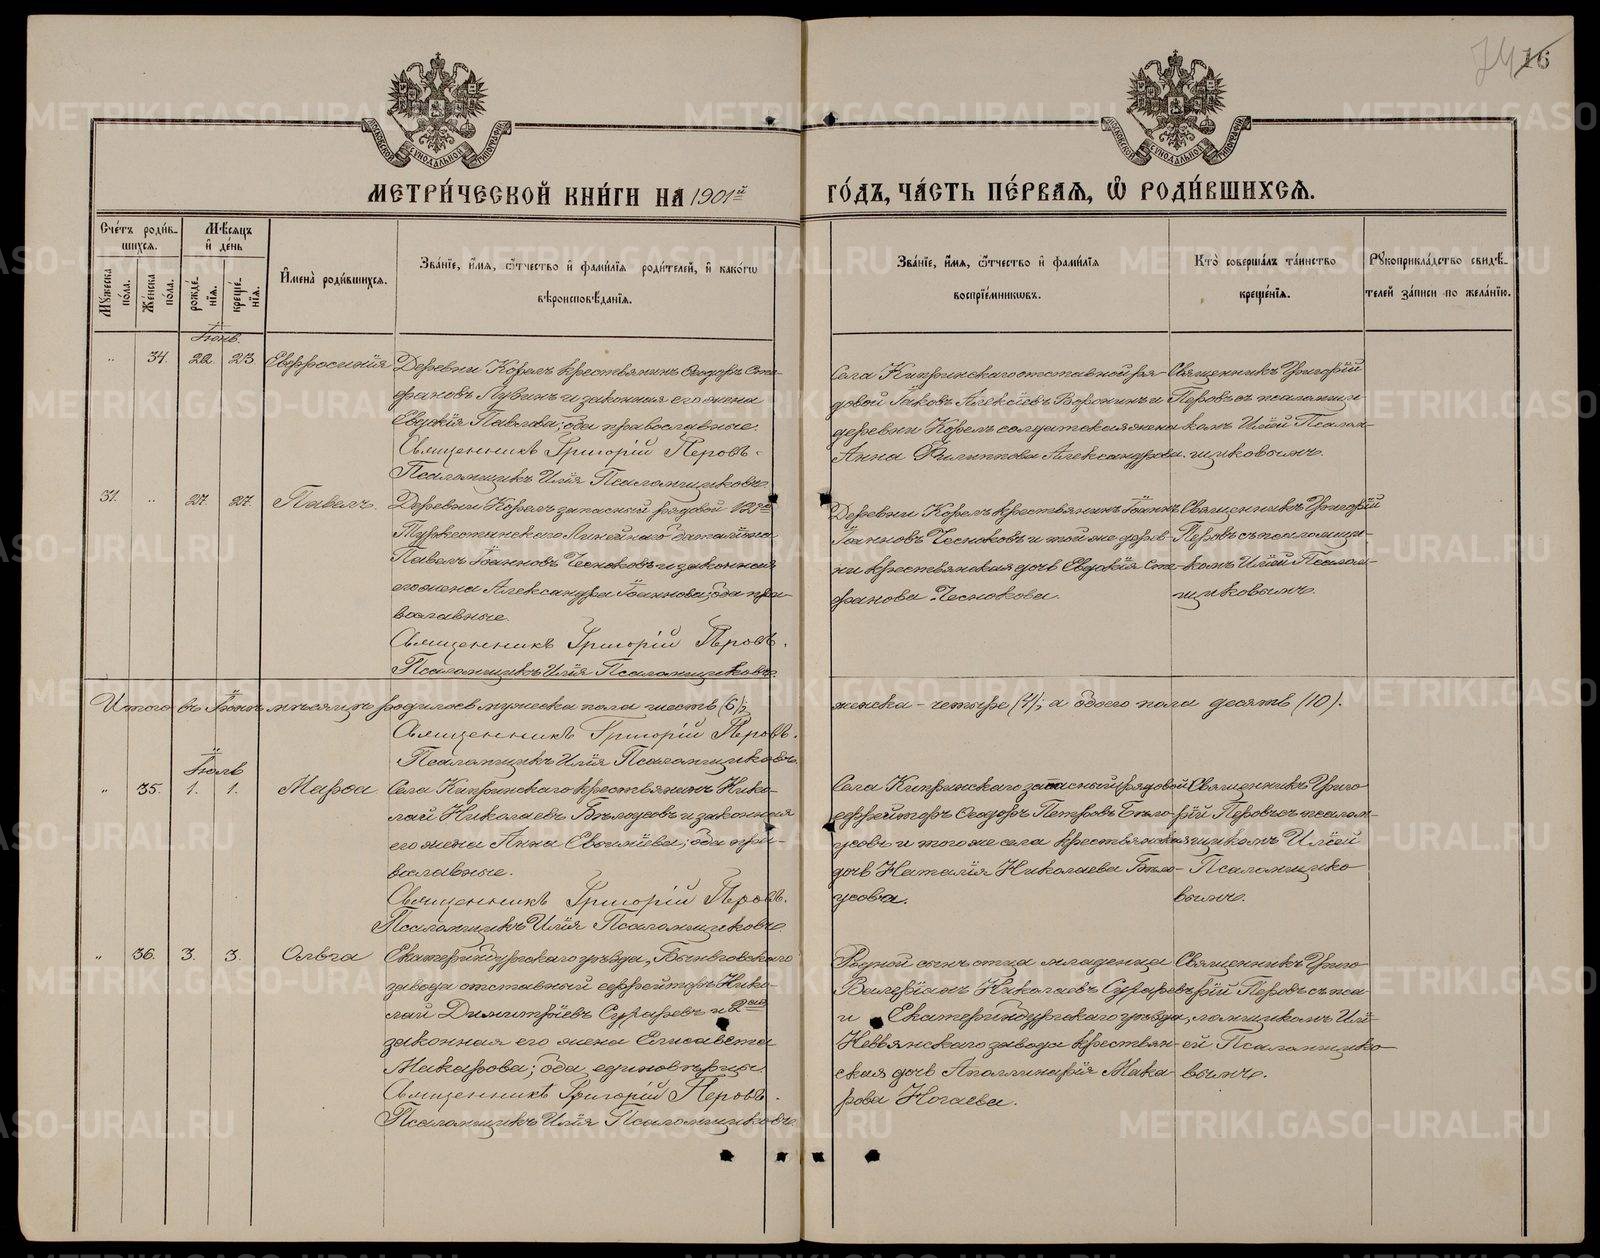 74 16
МОСКОВСКОЙ СѴНОДАЛЬНОЙ ТИПОГРАФІИ
МОСКОВСКОЙ СѴНОДАЛЬНОЙ ТИПОГРАФІИ
МЕТРИ́ЧЕСКОЙ КНИ́ГИ НА 1901й ГО́ДЪ, ЧА́СТЬ ПЕ́РВАЯ, Ѡ РОДИ́ВШИХСѦ.
Сче́тъ роди́в-
шихся.
Мѣ́сяцъ
и де́нь
Мꙋ́жеска
по́ла.
Же́нска
по́ла.
рожде́-
нїя.
креще́-
нїя.
И҆мена̀ роди́вшихся.
Зва́нїе, и҆́мя, ѻ҆́тчество и҆ фами́лїя роди́телей, и҆ како́гѡ
вѣроисповѣ́данїя.
Зва́нїе, и҆́мя, ѻ҆́тчество и҆ фами́лїя
воспрїе́мникѡвъ.
Кто̀ соверша́лъ та́инство
креще́нїя.
Рꙋкоприкла́дство свидѣ́-
телей за́писи по жела́нїю.
Іюнь.
" 34. 22. 23. Евфросинія
Деревни Корелъ крестьянинъ Ѳеодоръ Сте-
фановъ Лузинъ и законная его жена
Евдокія Павлова; оба православные.
Священникъ Григорій Перовъ.
Псаломщикъ Илія Псаломщиковъ.
Села Кипринскаго отставной ря-
довой Іаковъ Алексіевъ Воронинъ и
деревни Корелъ солдатская жена
Анна Филиппова Александрова.
Священникъ Григорій
Перовъ съ псаломщи-
комъ Иліей Псалом-
щиковымъ.
31. " 27. 27. Павелъ.
Деревни Корелъ запасный рядовой 12го
Туркестанскаго Линейнаго баталіона
Павелъ Іоанновъ Чесноковъ и законная
его жена Александра Іоаннова; оба пра-
вославные.
Священникъ Григорій Перовъ.
Псаломщикъ Илія Псаломщиковъ.
Деревни Корелъ крестьянинъ Іоаннъ
Іоанновъ Чесноковъ и той же дерев-
ни крестьянская дочь Евдокія Сте-
фанова Чеснокова.
Священникъ Григорій
Перовъ съ псаломщи-
комъ Иліей Псалом-
щиковымъ.
Итого въ Іюнѣ мѣсяцѣ родилось мужеска пола шесть (6), женска - четыре (4); а обоего пола десять (10).
Священникъ Григорій Перовъ.
Псаломщикъ Илія Псаломщиковъ.
Іюль
" 35. 1. 1. Марѳа
Села Кипринскаго крестьянинъ Нико-
лай Николаевъ Бѣлоусовъ и законная
его жена Анна Евфиміева; оба пра-
вославные.
Священникъ Григорій Перовъ.
Псаломщикъ Илія Псаломщиковъ.
Села Кипринскаго запасный рядовой
ефрейторъ Ѳеодоръ Петровъ Бѣло-
усовъ и того же села крестьянская
дочь Наталія Николаева Бѣло-
усова.
Священникъ Григо-
рій Перовъ съ псалом-
щикомъ Иліей
Псаломщико-
вымъ.
" 36. 3. 3. Ольга
Екатеринбургскаго уѣзда, Быньговскаго
завода отставный ефрейторъ Нико-
лай Димитріевъ Сударевъ и 2ая
законная его жена Елисавета
Макарова; оба единовѣрцы.
Священникъ Григорій Перовъ.
Псаломщикъ Илія Псаломщиковъ.
Родной сынъ отца младенца
Валеріанъ Николаевъ Сударевъ
и Екатеринбургскаго уѣзда,
Невьянскаго завода крестьян-
ская дочь Аполлинарія Мака-
рова Ногаева.
Священникъ Григо-
рій Перовъ съ пса-
ломщикомъ Илі-
ей Псаломщико-
вымъ.
METRIKI.GASO-URAL.RU